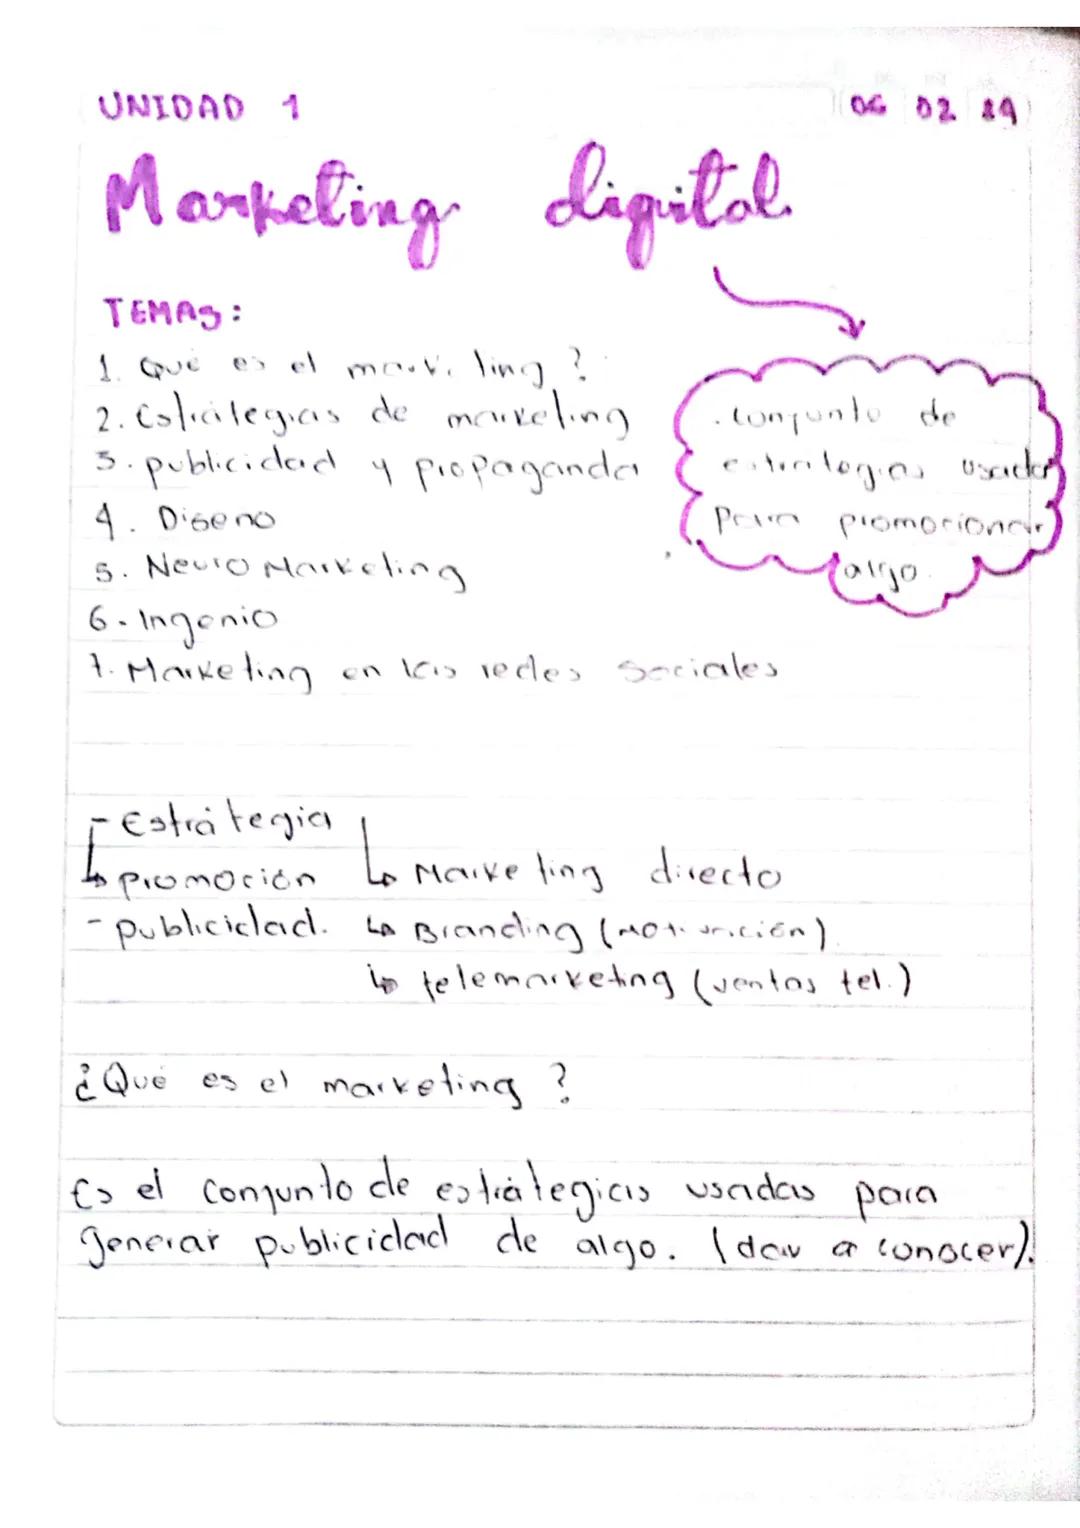 UNIDAD 1
06 02 19
Marketing digital
TEMAS:
1. Qué es el marketing?
2. Estrategias de marketing
3. publicidad y propaganda
4. Diseno
5. Neuro Marketing
6. Ingenio
7. Marketing en las redes sociales
. conjunto de
estrategias usadas
para promocionar
algo.
- Estrátegia
↳ promoción
- publicidad.
↳ Marketing directo
↳ Branding (Motivición)
↳ telemarketing (ventas tel.)
¿Qué es el marketing?
Es el conjunto de estrátegias usadas para
generar publicidad de algo. (dar a conocer).